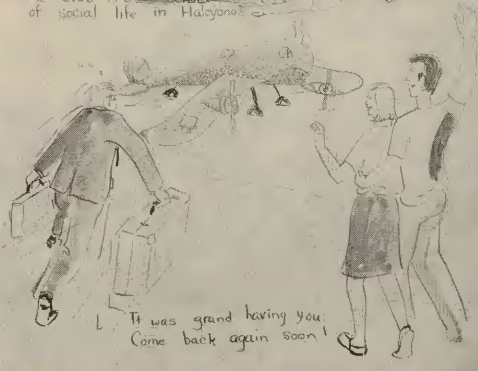 of social life in Halcyona
It was grand having you.
Come back again soon!